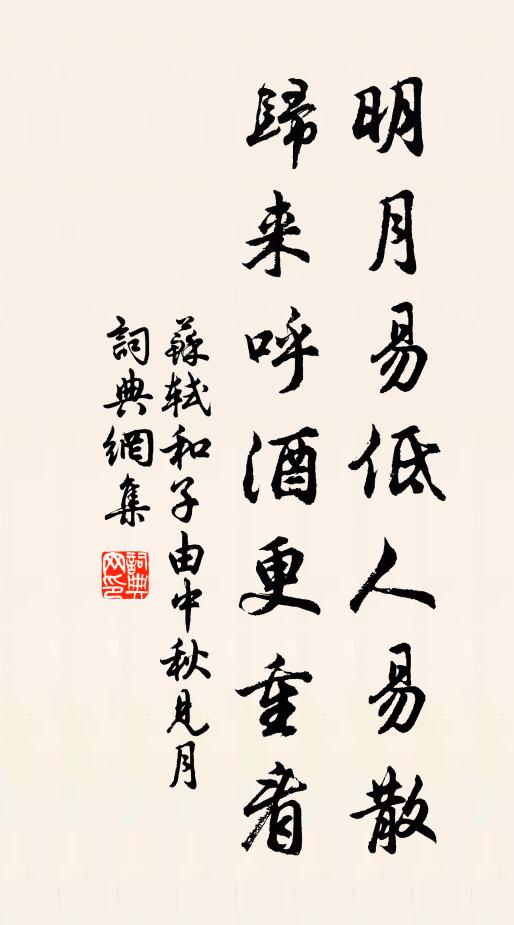 明月易低人易散
歸来呼酒更重看
蘇軾和子由中秋見月
詞典網集
詞典網印